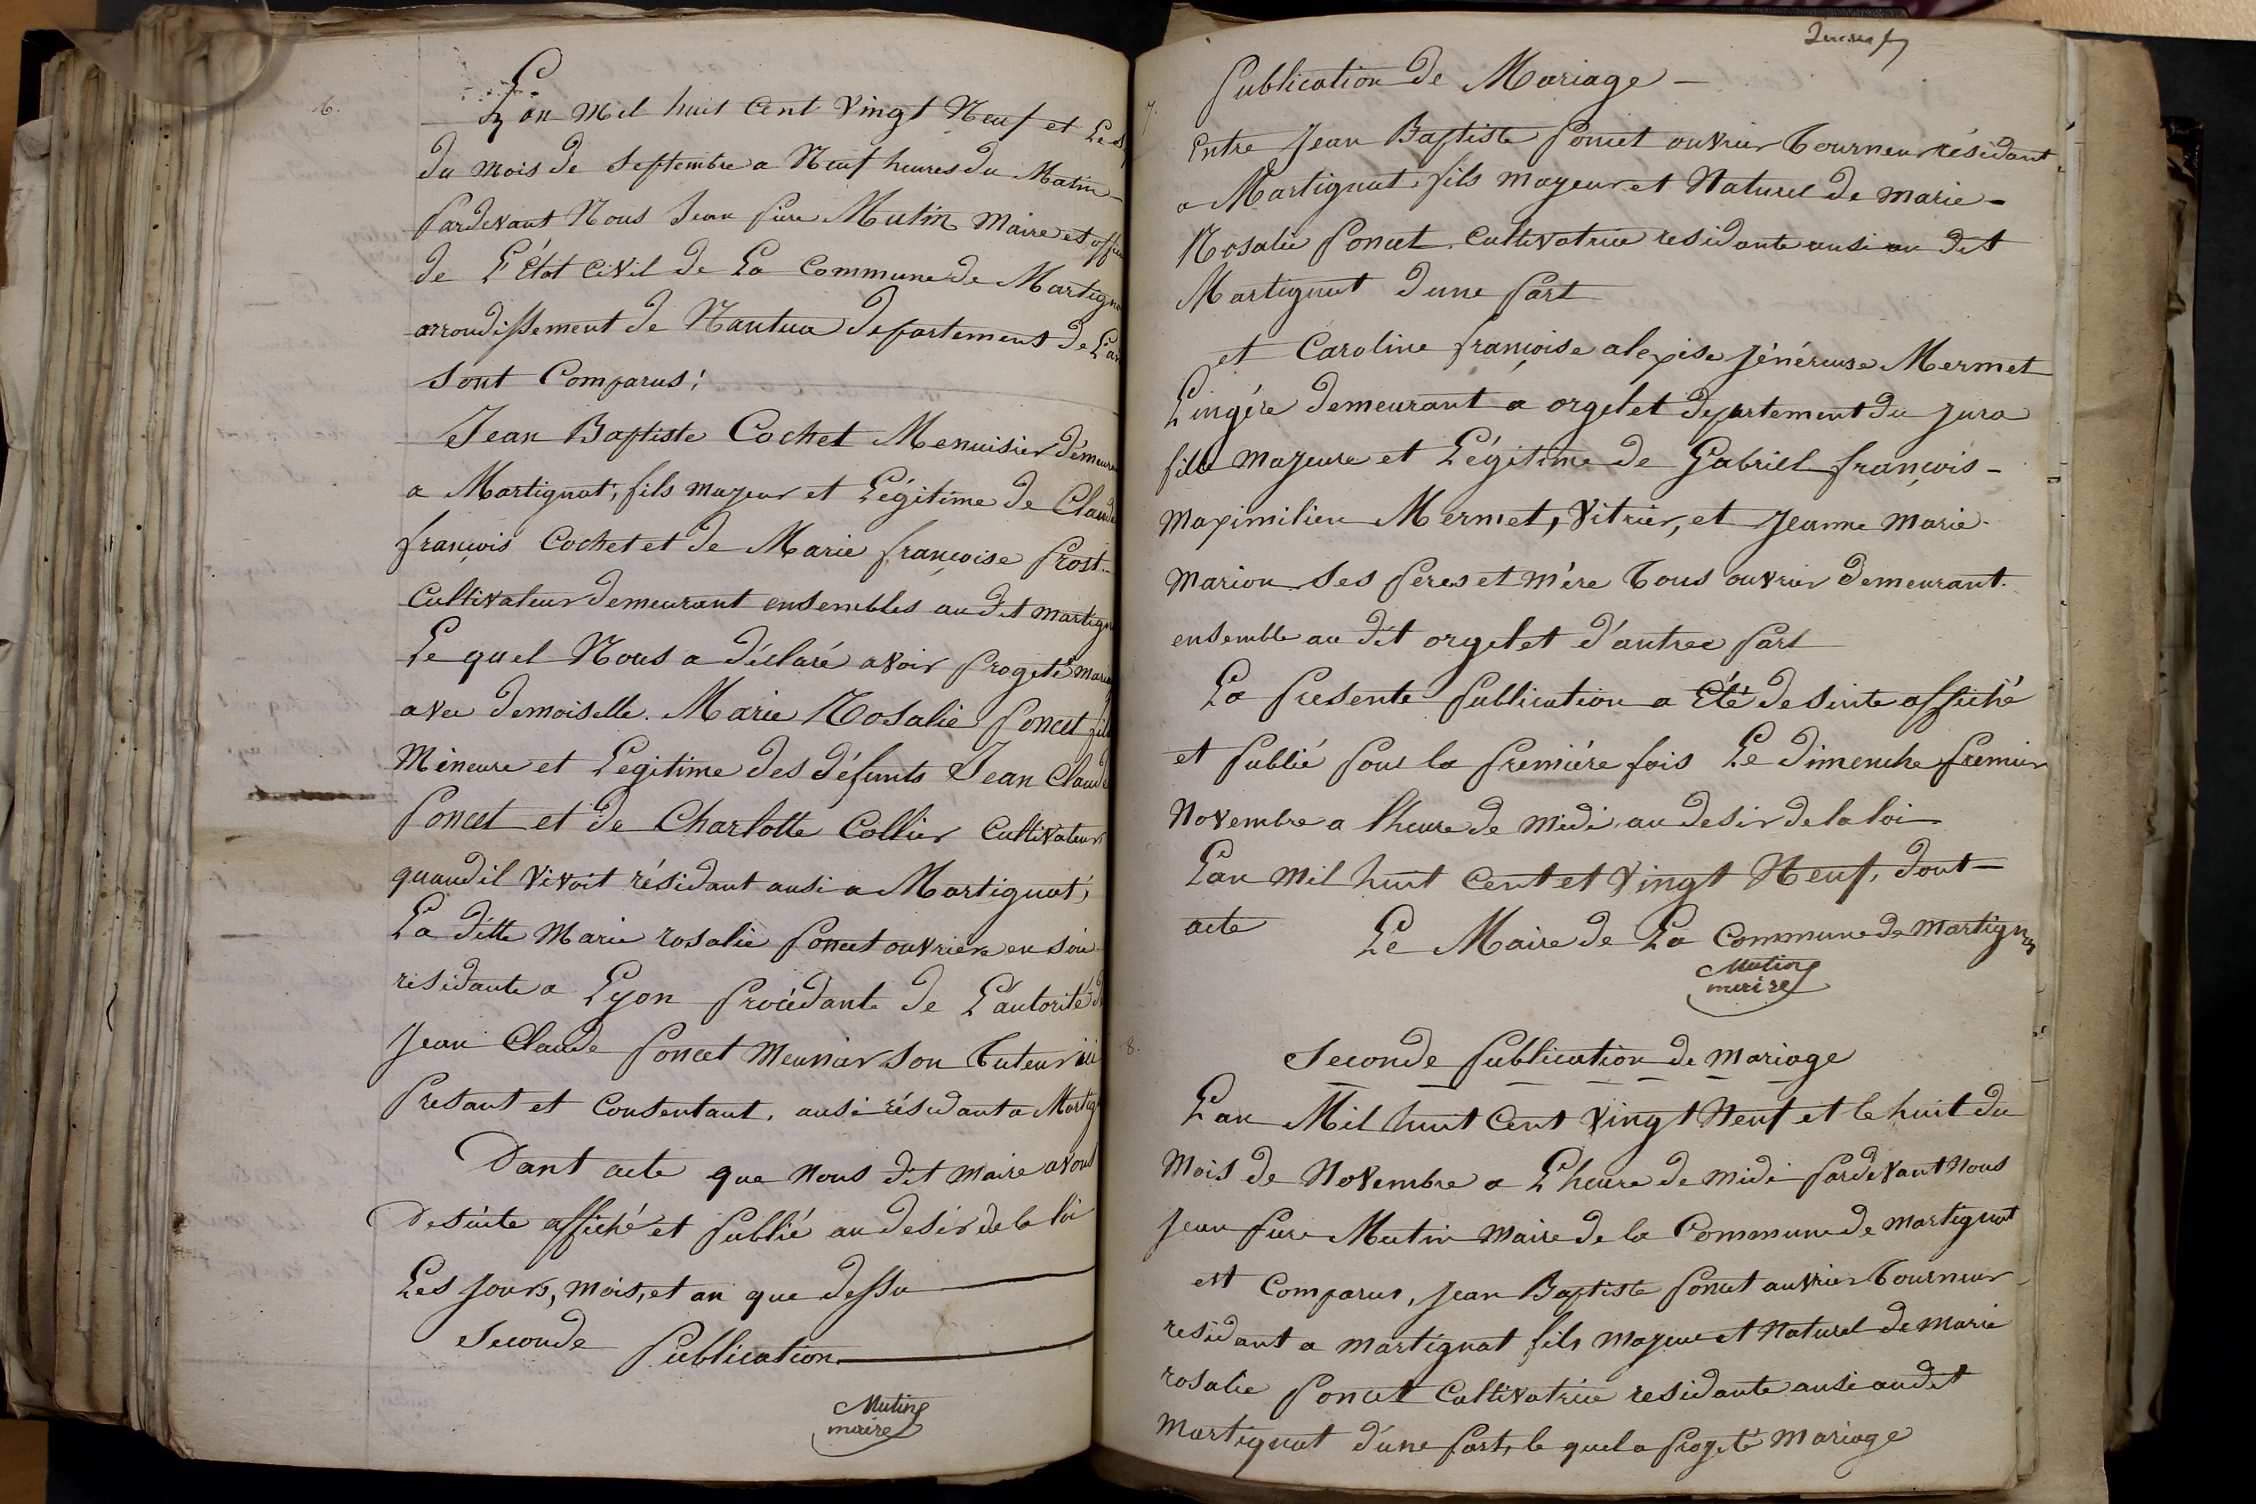 6.
L'an mil huit Cent Vingt Neuf et Le
du mois de Septembre a Neuf heures du Matin
Pardevant Nous Jean Pierre Mutin Maire et offi
de L'État Civil de La Commune de Martign
arrondissement de Nantua département de L'ai
Sont Comparus;
Jean Baptiste Cochet Menuisier démeura
a Martignat, fils mayeur et Légitime de Claude
françois Cochet et de Marie françoise Prost
Cultivateur demeurant ensembles au dit martign
Le quel Nous a déclaré avoir Progeté maria
avec demoiselle Marie Rosalie Poncet fil
Mineure et Legitime des défunts Jean Claude
Poncet et de Charlotte Collier Cultivateurs
quand il Vivoit résidant ausi a Martignat;
La ditte Marie rosalie Poncet ouvriere en soie
residante a Lyon Procédante de L'autorité d
Jean Claude Poncet Meunier Son Tuteur ici
Present et Consentant, ausi résidant a Martig
Dant acte que nous dit maire avons
De suite affiché et Publié au desir de la loi
Les Jours, mois, et an que dessu
Seconde Publication
Mutin
maire
7.
Publication de Mariage
Entre Jean Baptiste Poncet ouvrier Tourneur résidant
a Martignat, fils mayeur et Naturel de marie
Rosalie Poncet Cultivatrice residante ausi au dit
Martignat d'une Part
et Caroline françoise alexise Jénéreuse Mermet
Lingére demeurant a orgelet departement du Jura
fille mayeure et Légitime de Gabriel françois
Maximilien Mermet, Vitrier, et Jeanne Marie
Marion Ses Peres et Mère Tous ouvrier demeurant
ensemble au dit orgelet d'autre Part
La Presente Publication a Été de suite affiché
et Publié Pour la Premiére fois Le dimenche Premier
Novembre a l'heure de midi au desir de la loi
L'an mil huit Cent et Vingt Neuf, dont
acte Le Maire de La Commune de Martignat
Mutin
maire
8.
Seconde Publication de Mariage
L'an Mil huit Cent Vingt Neuf et le huit du
Mois de Novembre a L'heure de midi Pardevant Nous
Jean Piere Mutin Maire de la Commune de Martignat
est Comparus, Jean Baptiste Poncet ouvrier Tourneur
residant a Martignat fils Mayeur et Naturel de Marie
rosalie Poncet Cultivatrice residante ausi audit
Martignat d'une Part, le quel a Progeté Mariage